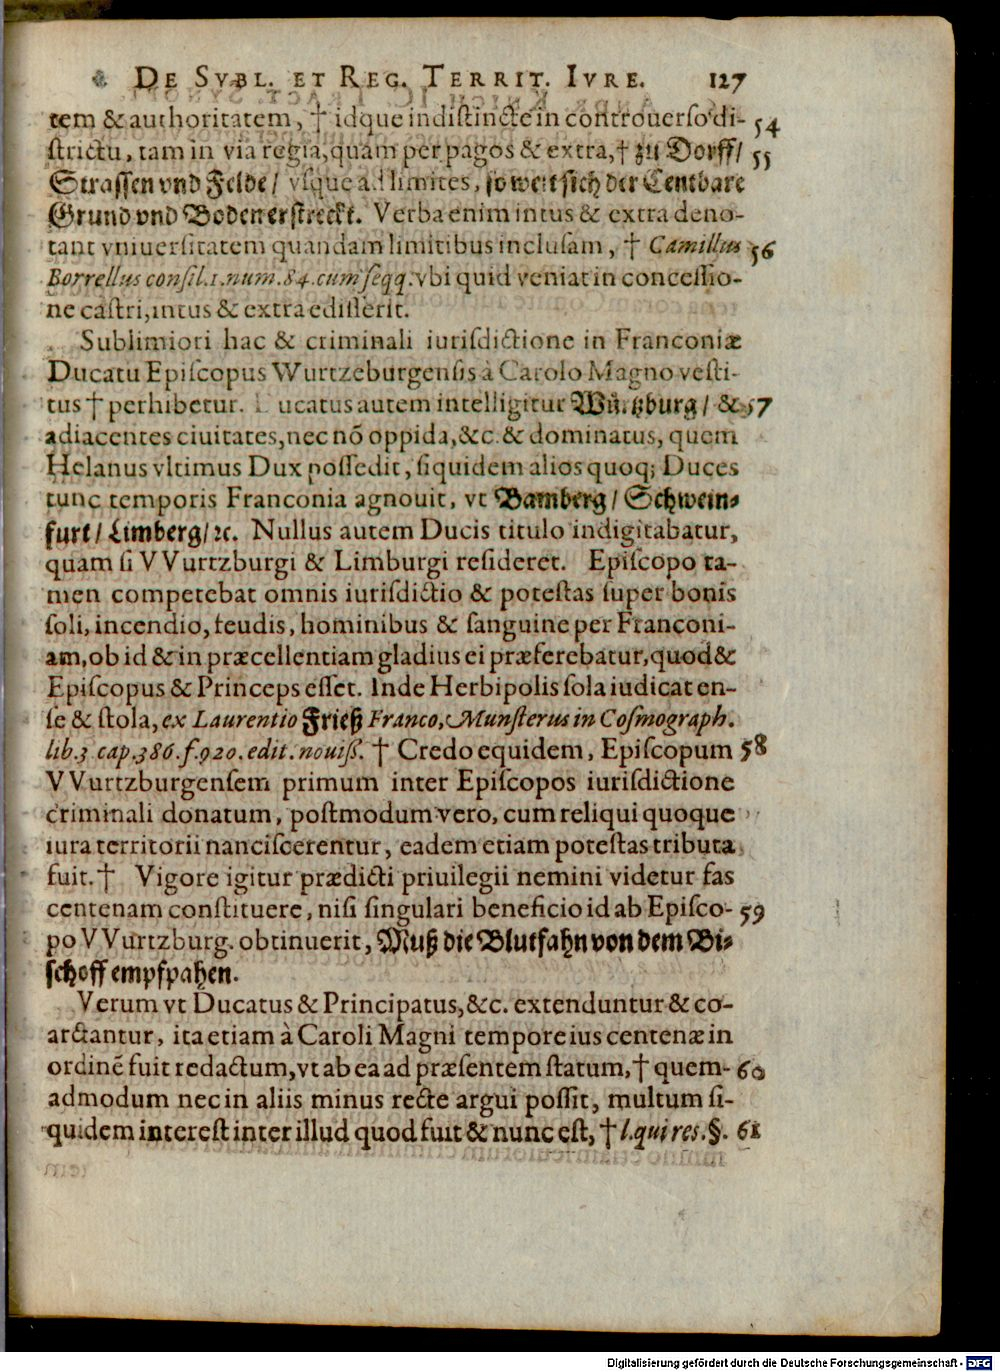 De Svbl. et Reg. Territ. Ivre. 127
tem & authoritatem, † idque indistincte in controuerso di- 54
strictu, tam in via regia, quàm per pagos & extra, † zu Dorff/ 55
Strassen vnd Felde/ vsque ad limites, so weit sich der Centbare
Grund vnd Boden erstreckt. Verba enim intus & extra deno-
tant vniuersitatem quandam limitibus inclusam, † Camillus 56
Borrellus consil. 1. num. 84. cum seqq. vbi quid veniat in concessio-
ne castri, intus & extra edisserit.
Sublimiori hac & criminali iurisdictione in Franconiæ
Ducatu Episcopus Wurtzeburgensis à Carolo Magno vesti-
tus † perhibetur. Ducatus autem intelligitur Würtzburg/ & 57
adiacentes ciuitates, nec nō oppida, &c. & dominatus, quem
Helanus vltimus Dux possedit, siquidem alios quoq; Duces
tunc temporis Franconia agnouit, vt Bamberg/ Schwein-
furt/ Limberg/ ꝛc. Nullus autem Ducis titulo indigitabatur,
quam si VVurtzburgi & Limburgi resideret. Episcopo ta-
men competebat omnis iurisdictio & potestas super bonis
soli, incendio, feudis, hominibus & sanguine per Franconi-
am, ob id & in præcellentiam gladius ei præferebatur, quod &
Episcopus & Princeps esset. Inde Herbipolis sola iudicat en-
se & stola, ex Laurentio Frieß Franco, Munsterus in Cosmograph.
lib. 3 cap. 386. f. 920. edit. nouiss. † Credo equidem, Episcopum 58
VVurtzburgensem primum inter Episcopos iurisdictione
criminali donatum, postmodum vero, cum reliqui quoque
iura territorii nanciscerentur, eadem etiam potestas tributa
fuit. † Vigore igitur prædicti priuilegii nemini videtur fas
centenam constituere, nisi singulari beneficio id ab Episco- 59
po VVurtzburg. obtinuerit, Muß die Blutfahn von dem Bi-
schoff empfpahen.
Verum vt Ducatus & Principatus, &c. extenduntur & co-
arctantur, ita etiam à Caroli Magni tempore ius centenæ in
ordinē fuit redactum, vt ab ea ad præsentem statum, † quem- 60
admodum nec in aliis minus recte argui possit, multum si-
quidem interest inter illud quod fuit & nunc est, † l. qui res. §. 61
Digitalisierung gefördert durch die Deutsche Forschungsgemeinschaft - DFG